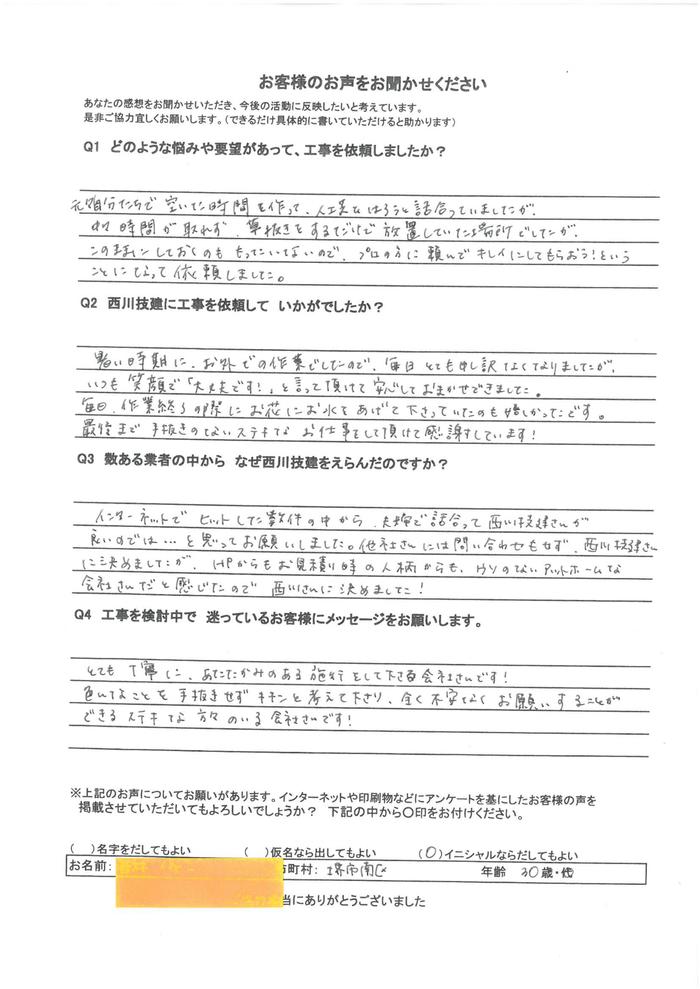 お客様のお声をお聞かせください
あなたの感想をお聞かせいただき、今後の活動に反映したいと考えています。
是非ご協力宜しくお願いします。(できるだけ具体的に書いていただけると助かります)
Q1 どのような悩みや要望があって、工事を依頼しましたか？
元々自分たちで空いた時間を作って、人工芝をはろうと話合っていましたが、
中々時間が取れず、草抜きをするだけで放置していた場所でしたが、
このままにしておくのももったいないので、プロの方に頼んでキレイにしてもらおう!という
ことになって依頼しました。
Q2 西川技建に工事を依頼して いかがでしたか？
暑い時期に、お外での作業でしたので、毎日とても申し訳なくなりましたが、
いつも笑顔で「大丈夫です!」と言って頂けて安心しておまかせできました。
毎日、作業終了の際にお花にお水をあげて下さっていたのも嬉しかったです。
最後まで手抜きのないステキなお仕事をして頂けて感謝しています!
Q3 数ある業者の中から なぜ西川技建をえらんだのですか？
インターネットでヒットした数件の中から、夫婦で話合って西川技建さんが
良いのでは…と思ってお願いしました。他社さんには問い合わもせず、西川技建さん
に決めましたが、HPからもお見積り時の人柄からも、ウソのないアットホームな
会社さんだと感じたので西川さんに決めました!
Q4 工事を検討中で 迷っているお客様にメッセージをお願いします。
とても丁寧に、あたたかみのある施行をして下さる会社さんです!
色んなことを手抜きせずキチンと考えて下さり、全く不安なくお願いすることが
できるステキな方々のいる会社さんです!
※上記のお声についてお願いがあります。インターネットや印刷物などにアンケートを基にしたお客様の声を
掲載させていただいてもよろしいでしょうか？ 下記の中から○印をお付けください。
( )名字をだしてもよい ( )仮名なら出してもよい (○)イニシャルならだしてもよい
お名前: 市町村: 堺市南区 年齢 30歳・代
当にありがとうございました